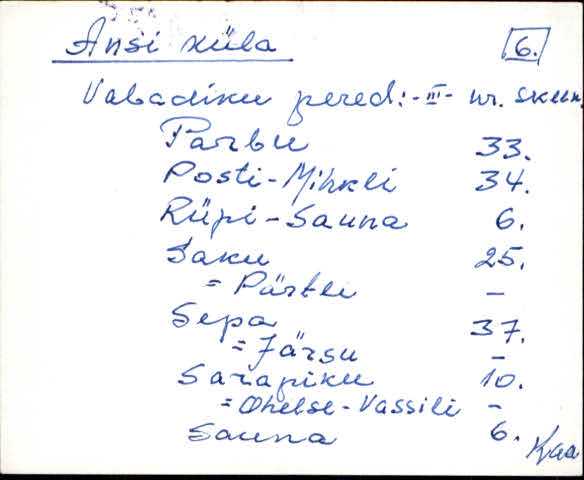 Ansi küla 6.
Vabadiku pered: -III- nr. skeem.
Parbu 33.
Posti-Mihkli 34.
Rüpi-Sauna 6.
Saku 25.
= Pärtli -
Sepa 37.
= Järsu -
Sarapiku 10.
= Ohelse-Vassili -
Sauna 6.
Kaa